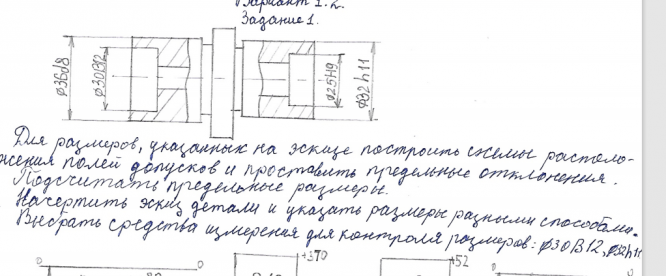 Вариант 1.2.
Задание 1.
⌀36d8
⌀30B12
⌀25H9
⌀32h11
Для размеров, указанных на эскизе построить схемы располо-
жения полей допусков и проставить предельные отклонения.
Подсчитать предельные размеры.
Начертить эскиз детали и указать размеры разными способами.
Выбрать средства измерения для контроля размеров: ⌀30B12, ⌀32h11
0 0 +370 +52